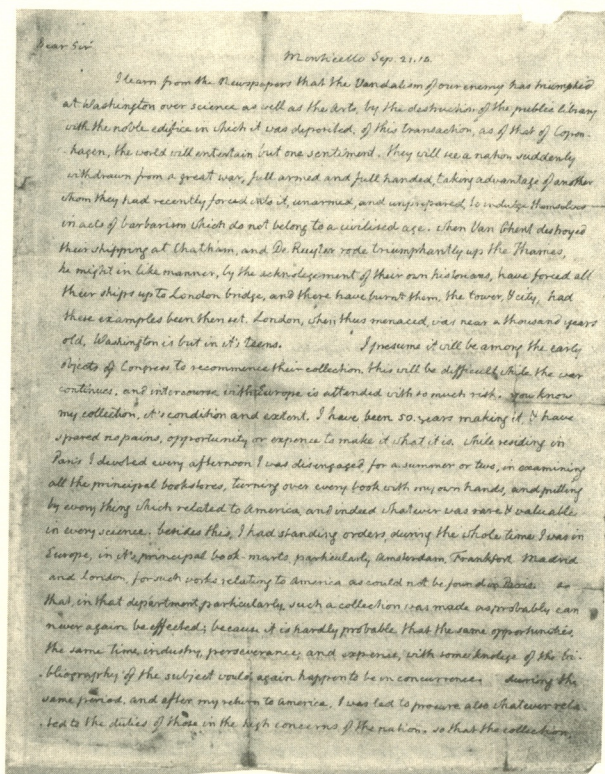 Dear Sir
Monticello Sep. 21. 14.
I learn from the Newspapers that the Vandalism of our enemy has triumphed
at Washington over science as well as the Arts, by the destruction of the public library
with the noble edifice in which it was deposited. of this transaction, as of that of Copen-
-hagen, the world will entertain but one sentiment. they will see a nation suddenly
withdrawn from a great war, full armed and full handed, taking advantage of another
whom they had recently forced into it, unarmed, and unprepared, to indulge themselves
in acts of barbarism which do not belong to a civilised age. when Van Ghent destroyed
their shipping at Chatham, and De Ruyter rode triumphantly up the Thames,
he might in like manner, by the acknolegement of their own historians, have forced all
their ships up to London bridge, and there have burnt them, the tower, & city, had
these examples been then set. London, when thus menaced, was near a thousand years
old, Washington is but in it's teens.
I presume it will be among the early
objects of Congress to recommence their collection. this will be difficult while the war
continues, and intercourse with Europe is attended with so much risk. you know
my collection, it's condition and extent. I have been 50. years making it, & have
spared no pains, opportunity or expence to make it what it is. while residing in
Paris I devoted every afternoon I was disengaged, for a summer or two, in examining
all the principal bookstores, turning over every book with my own hands, and putting
by every thing which related to America, and indeed whatever was rare & valuable
in every science. besides this, I had standing orders, during the whole time I was in
Europe, in it's principal book-marts, particularly Amsterdam, Frankfort, Madrid
and London, for such works relating to America as could not be found in Paris. so
that, in that department particularly, such a collection was made as probably can
never again be effected; because it is hardly probable that the same opportunities,
the same time, industry, perseverance, and expence, with some knolege of the bi-
-bliography of the subject would again happen to be in concurrence. during the
same period, and after my return to America, I was led to procure also whatever rela-
-ted to the duties of those in the high concerns of the nation. so that the collection,